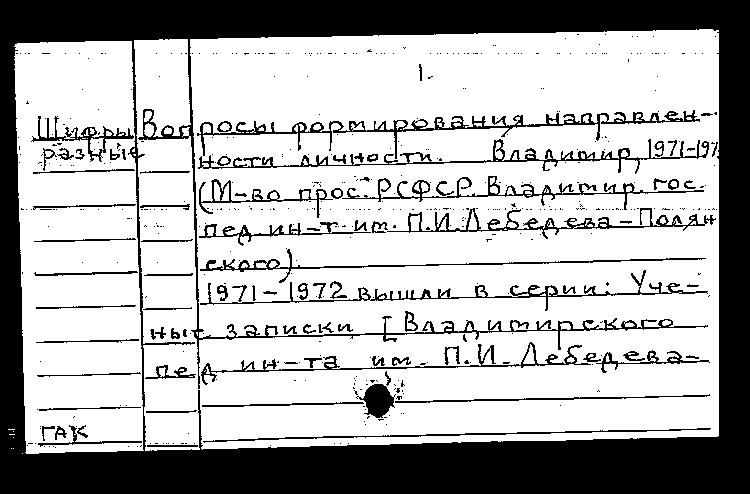 1.
Шифры Вопросы формирования направлен-
разные ности личности. Владимир, 1971-197
(М-во прос. РСФСР. Владимир. гос.
пед. ин-т им. П.И. Лебедева-Полян
ского).
1971-1972 вышли в серии: Уче-
ные записки [Владимирского
пед. ин-та им. П.И. Лебедева-
ГАК